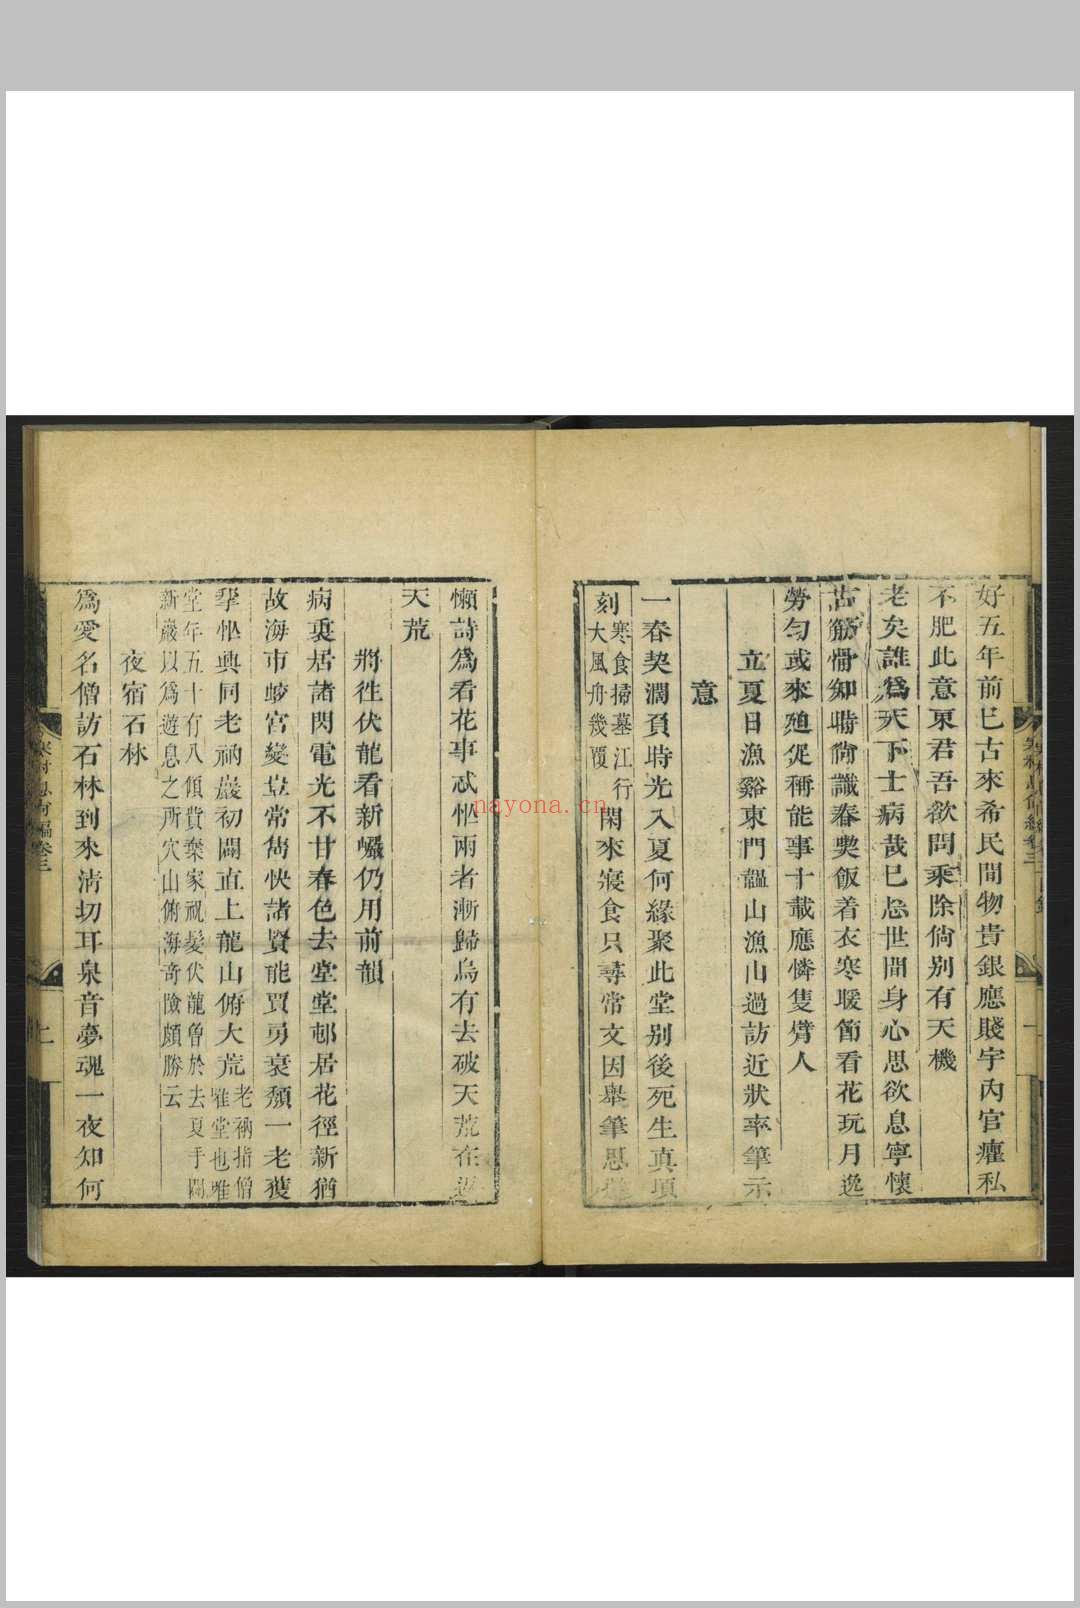 好五年前已古來希民間物貴銀應賤宇內官癯私
不肥此意東君吾欲問乘除倘别有天機
老矣誰爲天下士病哉已忘世間身心思欲息寧懷
古筋骨知時尚識春喫飯着衣寒暖節看花玩月逸
勞勻或來殖促稱能事十載應憐隻臂人
立夏日漁谿東門諨山漁山過訪近狀率筆示
意
一春契濶負時光入夏何緣聚此堂别後死生真項
刻寒食掃墓江行大風舟幾覆閑來寢食只尋常文因舉筆思
懶詩爲看花事忒怭兩者漸歸烏有去破天荒在
天荒
將徃伏龍看新巗仍用前韻
病裏居諸閃電光不甘春色去堂堂邨居花徑新猶
故海市妙宮變豈常雋快諸賢能賈勇衰頽一老獲
拏怭興同老衲巖初闢直上龍山俯大荒老衲指僧唯堂也唯
堂年五十有八傾貲棄家祝髮伏龍曾於去夏手闢
新巖以爲遊息之所穴山俯海奇險頗勝云
夜宿石林
爲愛名僧訪石林到來淸切耳泉音夢魂一夜知何
息何編卷三
nayona.cn